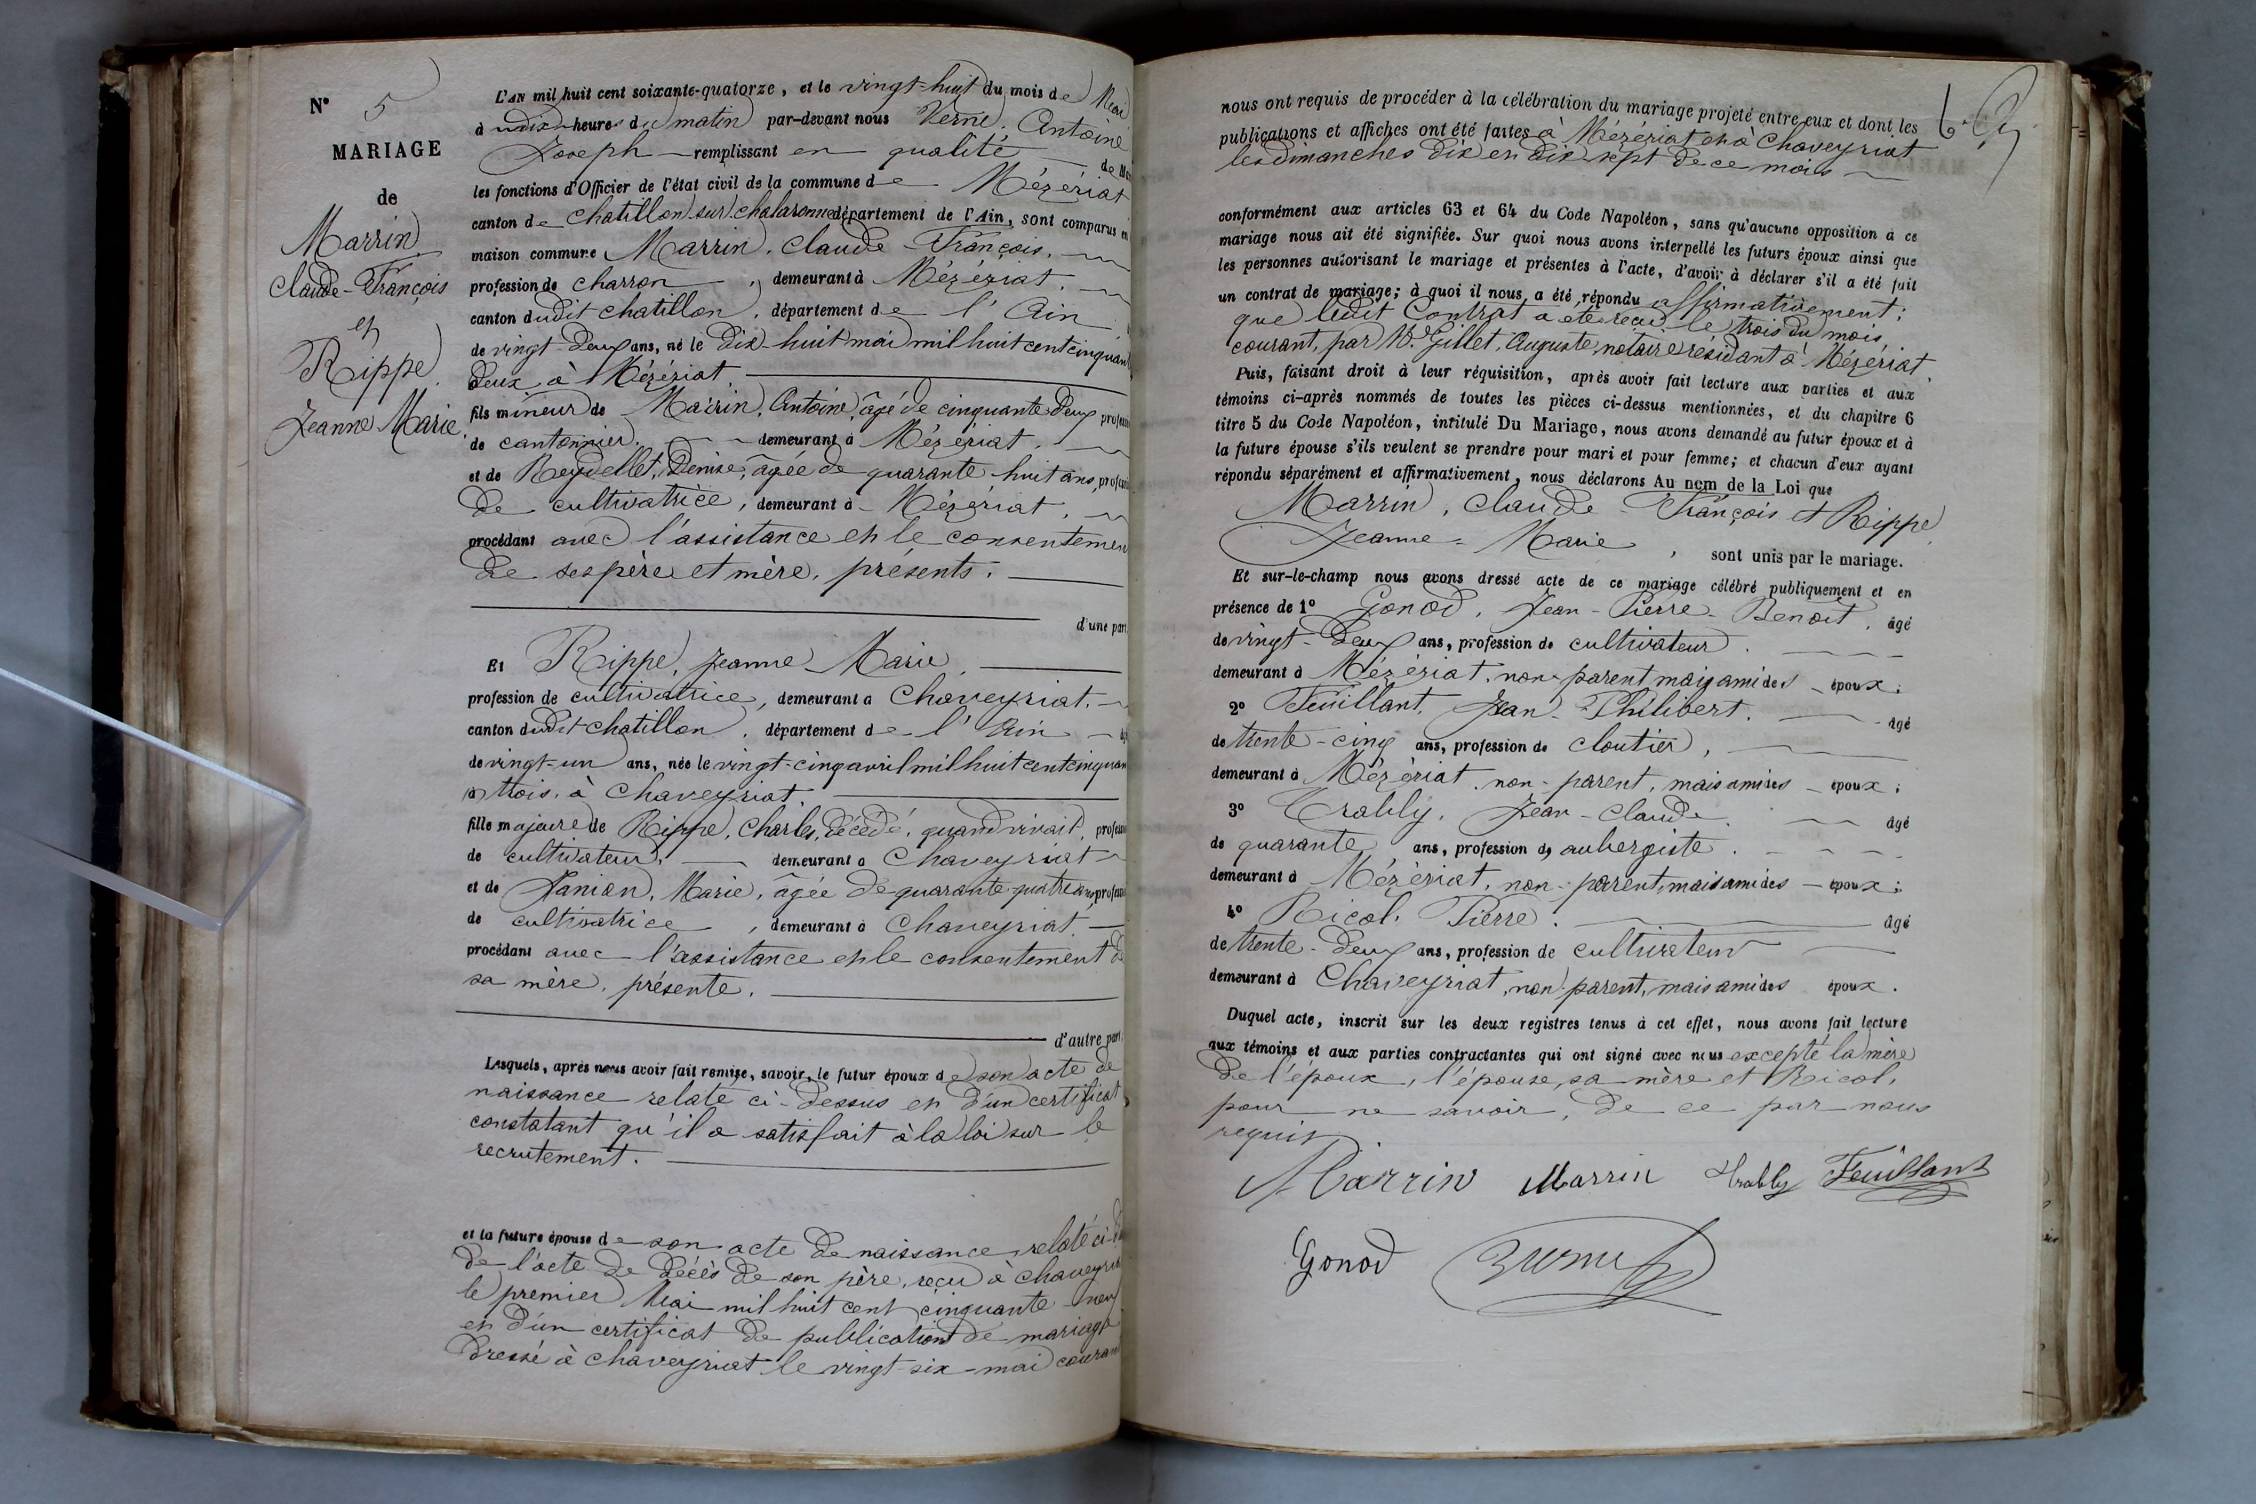 N° 5
MARIAGE
de
Marrin
Claude-François
et
Rippe
Jeanne Marie.
L'AN mil huit cent soixante-quatorze, et le vingt-huit du mois de Mai
à dix heures du matin par-devant nous Verne, Antoine
Joseph remplissant en qualité de
les fonctions d'Officier de l'état civil de la commune de Mézériat
canton de Chatillon sur Chalaronne département de l'Ain, sont comparus en
maison commune Marrin, Claude François,
profession de charron, demeurant à Mézériat,
canton dudit Chatillon, département de l'Ain
de vingt-deux ans, né le dix-huit mai mil huit cent cinquante
deux à Mézériat
fils mineur de Marrin, Antoine, âgé de cinquante deux
de cantonnier, demeurant à Mézériat,
et de Reydellet, Denise, âgée de quarante huit ans,
de cultivatrice, demeurant à Mézériat,
procédant avec l'assistance et le consentement
de ses père et mère, présents.
d'une part
Et Rippe, Jeanne Marie,
profession de cultivatrice, demeurant à Chaveyriat,
canton dudit Chatillon, département de l'Ain
de vingt-un ans, née le vingt-cinq avril mil huit cent cinquan
trois, à Chaveyriat,
fille majeure de Rippe, Charles, décédé, quand vivait,
de cultivateur, demeurant à Chaveyriat
et de Janian, Marie, âgée de quarante-quatre ans,
de cultivatrice, demeurant à Chaveyriat,
procédant avec l'assistance et le consentement de
sa mère, présente.
d'autre part
Lesquels, après nous avoir fait remise, savoir, le futur époux de son acte de
naissance relaté ci-dessus et d'un certificat
constatant qu'il a satisfait à la loi sur le
recrutement.
et la future épouse de son acte de naissance relaté ci-
de l'acte de décès de son père, reçu à Chaveyriat
le premier Mai mil huit cent cinquante neuf
et d'un certificat de publication de mariage
dressé à Chaveyriat le vingt-six mai courant
nous ont requis de procéder à la célébration du mariage projeté entre eux et dont les
publications et affiches ont été faites à Mézériat et à Chaveyriat
les dimanches dix et dix sept de ce mois
conformément aux articles 63 et 64 du Code Napoléon, sans qu'aucune opposition à ce
mariage nous ait été signifiée. Sur quoi nous avons interpellé les futurs époux ainsi que
les personnes autorisant le mariage et présentes à l'acte, d'avoir à déclarer s'il a été fait
un contrat de mariage; à quoi il nous a été répondu affirmativement;
que ledit Contrat a été reçu le trois du mois
courant, par Me Gillet, Auguste, notaire résidant à Mézériat
Puis, faisant droit à leur réquisition, après avoir fait lecture aux parties et aux
témoins ci-après nommés de toutes les pièces ci-dessus mentionnées, et du chapitre 6
titre 5 du Code Napoléon, intitulé Du Mariage, nous avons demandé au futur époux et à
la future épouse s'ils veulent se prendre pour mari et pour femme; et chacun d'eux ayant
répondu séparément et affirmativement, nous déclarons Au nom de la Loi que
Marrin, Claude-François et Rippe,
Jeanne-Marie, sont unis par le mariage.
Et sur-le-champ nous avons dressé acte de ce mariage célébré publiquement et en
présence de 1° Gonod, Jean-Pierre-Benoît, âgé
de vingt-deux ans, profession de cultivateur.
demeurant à Mézériat, non parent mais ami des époux;
2° Feuillant, Jean-Philibert, âgé
de trente-cinq ans, profession de cloutier,
demeurant à Mézériat, non-parent, mais ami des époux;
3° Trably, Jean-Claude, âgé
de quarante ans, profession de aubergiste.
demeurant à Mézériat, non-parent, mais ami des époux;
4° Ricol, Pierre. âgé
de trente-deux ans, profession de cultivateur
demeurant à Chaveyriat, non parent, mais ami des époux.
Duquel acte, inscrit sur les deux registres tenus à cet effet, nous avons fait lecture
aux témoins et aux parties contractantes qui ont signé avec nous excepté la mère
de l'époux, l'épouse, sa mère et Ricol,
pour ne savoir, de ce par nous
requis
Marrin Marrin Trably Feuillant
Gonod